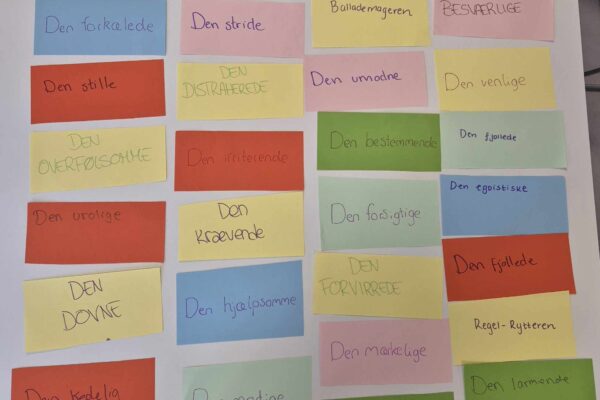 Den forkælede
Den stride
Ballademageren
BESVÆRLIGE
Den stille
DEN
DISTRAHEREDE
Den umodne
Den venlige
DEN
OVERFØLSOMME
Den irriterende
Den bestemmende
Den fjollede
Den urolige
Den
Krævende
Den forsigtige
Den egoistiske
DEN
DOVNE
Den hjælpsomme
DEN
FORVIRREDE
Den Fjollede
Den mærkelige
Regel-Rytteren
Den kedelig
Den larmende